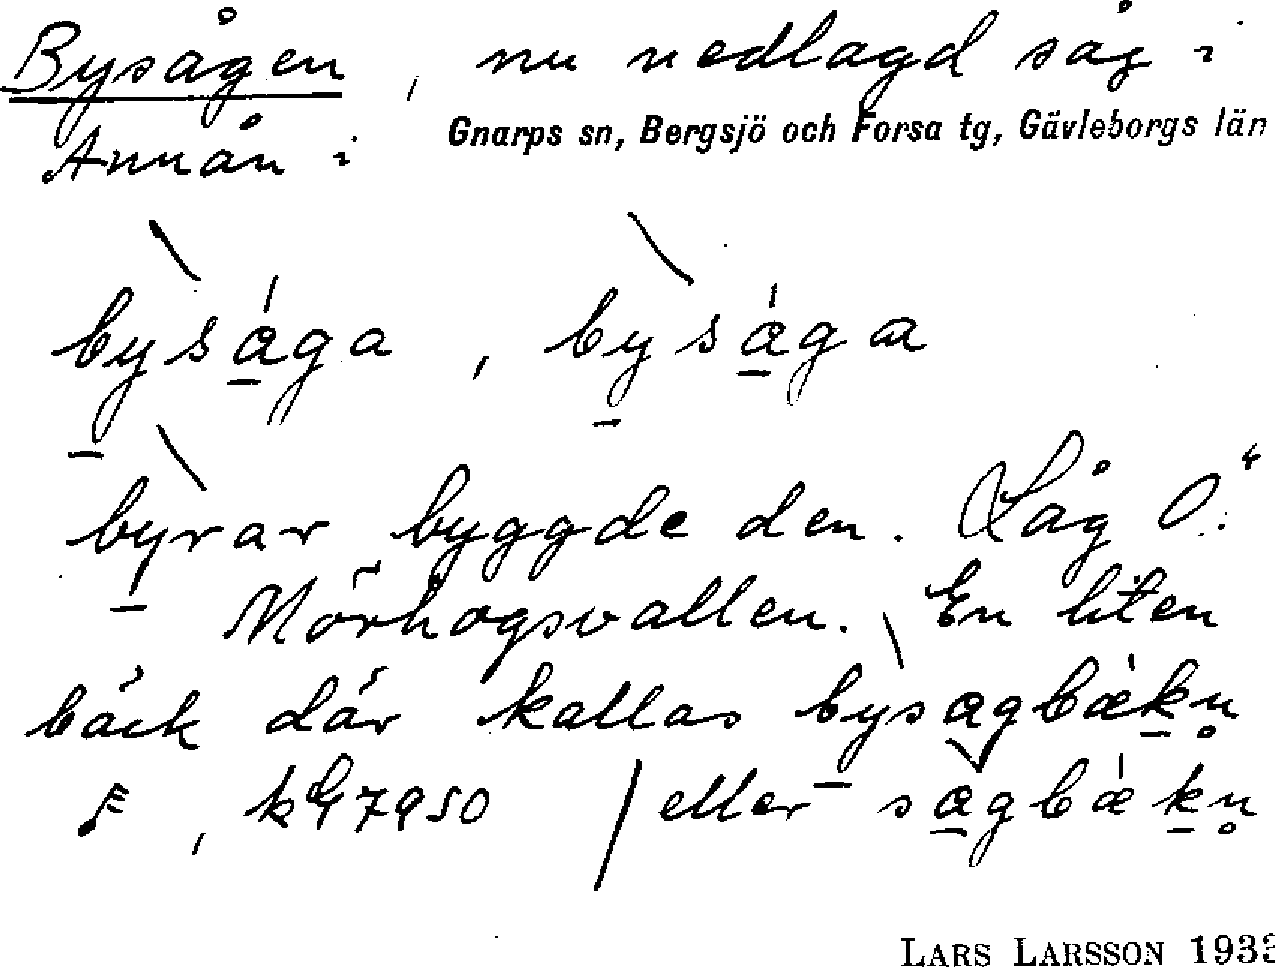 Bysågen, nu nedlagd såg i
Annån i Gnarps sn, Bergsjö och Forsa tg, Gävleborgs län
bysåga, bysåga
byrar byggde den. Låg O.
Mörhogsvallen. En liten
bäck där kallas bysagbækn
eller sagbækn
LARS LARSSON 1933